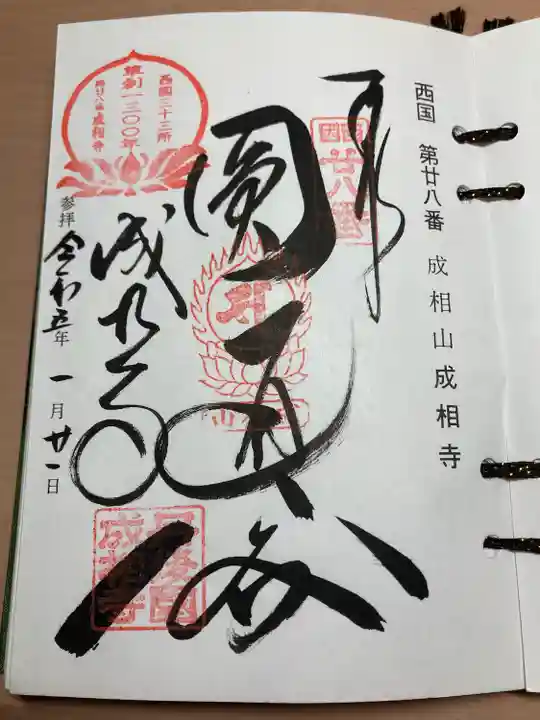 西国 第廿八番 成相山成相寺
奉拝
圓通閣
成相寺
西国
廿八番
西国三十三所
草創一三〇〇年
第廿八番 成相寺
参拝 令和五年 一月 廿一日